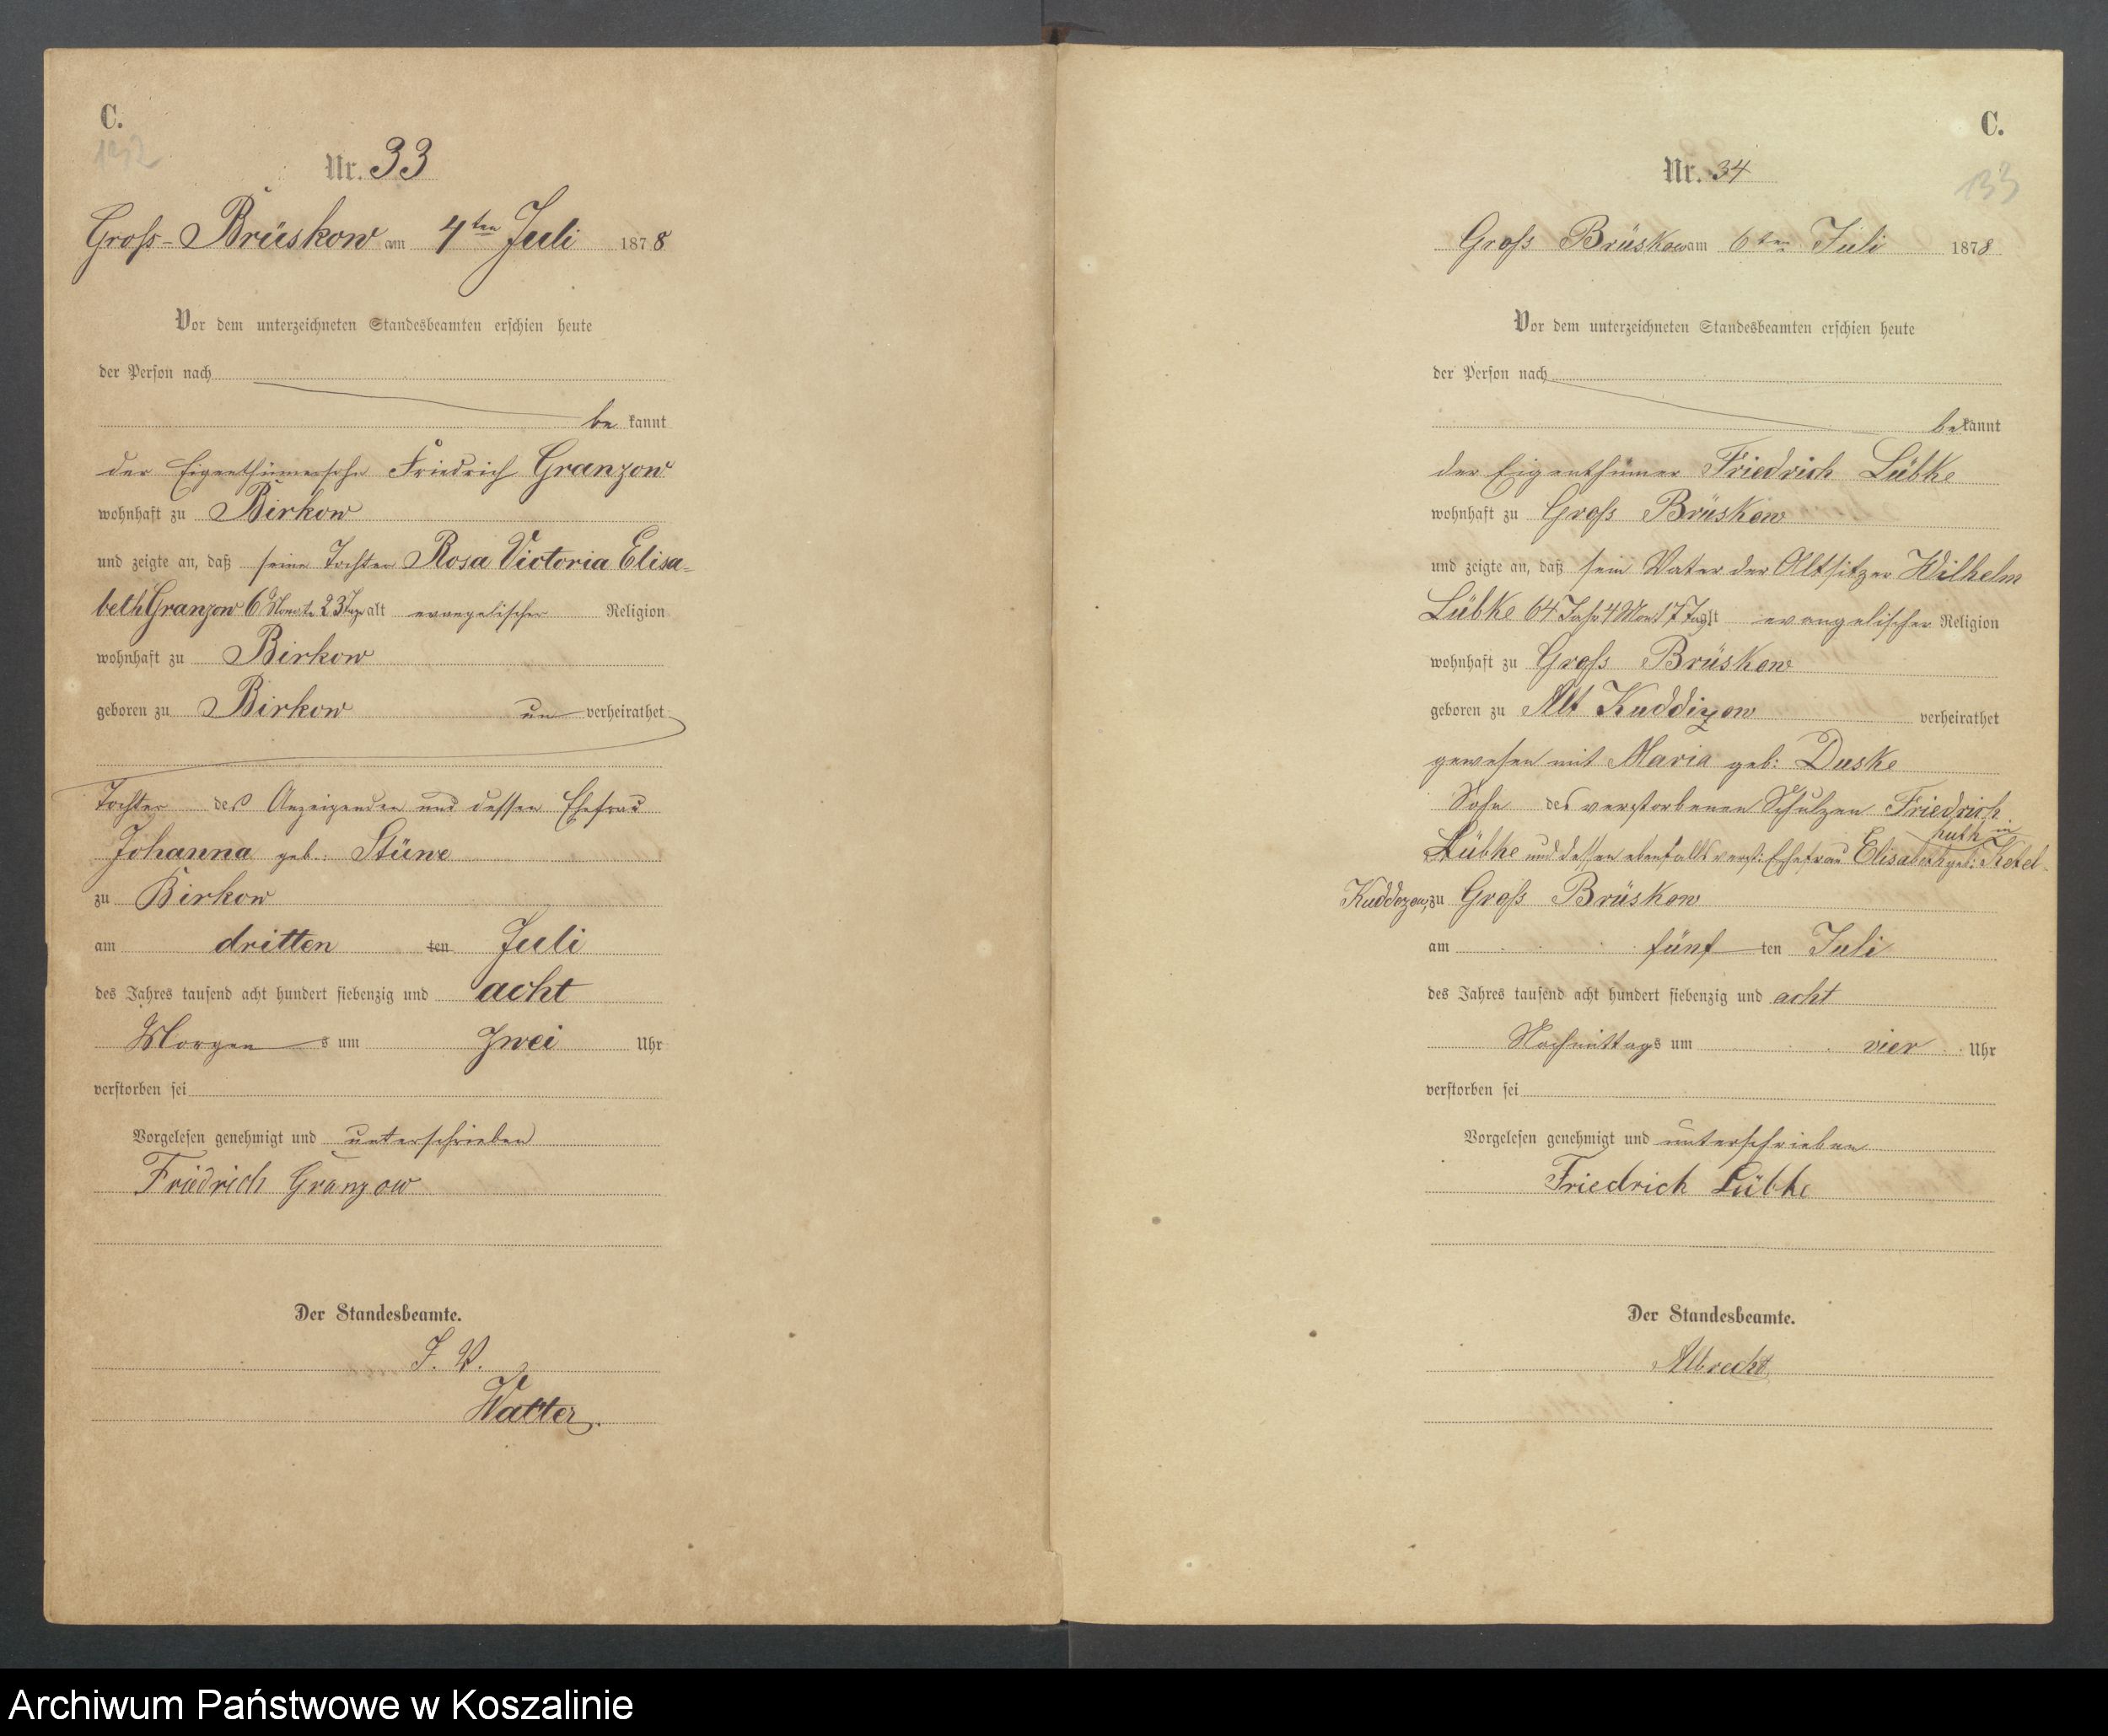 C.
132
Nr. 33
Groß-Brüskow am 4ten Juli 1878
Vor dem unterzeichneten Standesbeamten erschien heute
der Person nach
be kannt
der Eigenthümersohn Friedrich Granzow
wohnhaft zu Birkow
und zeigte an, daß seine Tochter Rosa Victoria Elisa-
beth Granzow 6 Monate 23 Tage alt evangelischer Religion
wohnhaft zu Birkow
geboren zu Birkow un verheirathet
Tochter des Anzeigenden und dessen Ehefrau
Johanna geb: Stüwe
zu Birkow
am dritten ten Juli
des Jahres tausend acht hundert siebenzig und acht
Morgen s um zwei Uhr
verstorben sei
Vorgelesen genehmigt und unterschrieben
Friedrich Granzow
Der Standesbeamte.
J. V.
Watter.
C.
133
Nr. 34
Groß Brüskow am 6ten Juli 1878
Vor dem unterzeichneten Standesbeamten erschien heute
der Person nach
bekannt
der Eigenthümer Friedrich Lübke
wohnhaft zu Groß Brüskow
und zeigte an, daß sein Vater der Altsitzer Wilhelm
Lübke 64 Jahr 4 Mon: 17 Tag alt evangelischer Religion
wohnhaft zu Groß Brüskow
geboren zu Alt Kuddezow verheirathet
gewesen mit Maria geb: Duske
Sohn des verstorbenen Schulzen Friedrich
huth in
Lübke und dessen ebenfalls verst: Ehefrau Elisabeth geb: Ketel-
Kuddezow, zu Groß Brüskow
am fünf ten Juli
des Jahres tausend acht hundert siebenzig und acht
Nachmittags um vier Uhr
verstorben sei
Vorgelesen genehmigt und unterschrieben
Friedrich Lübke
Der Standesbeamte.
Albrecht
Archiwum Państwowe w Koszalinie